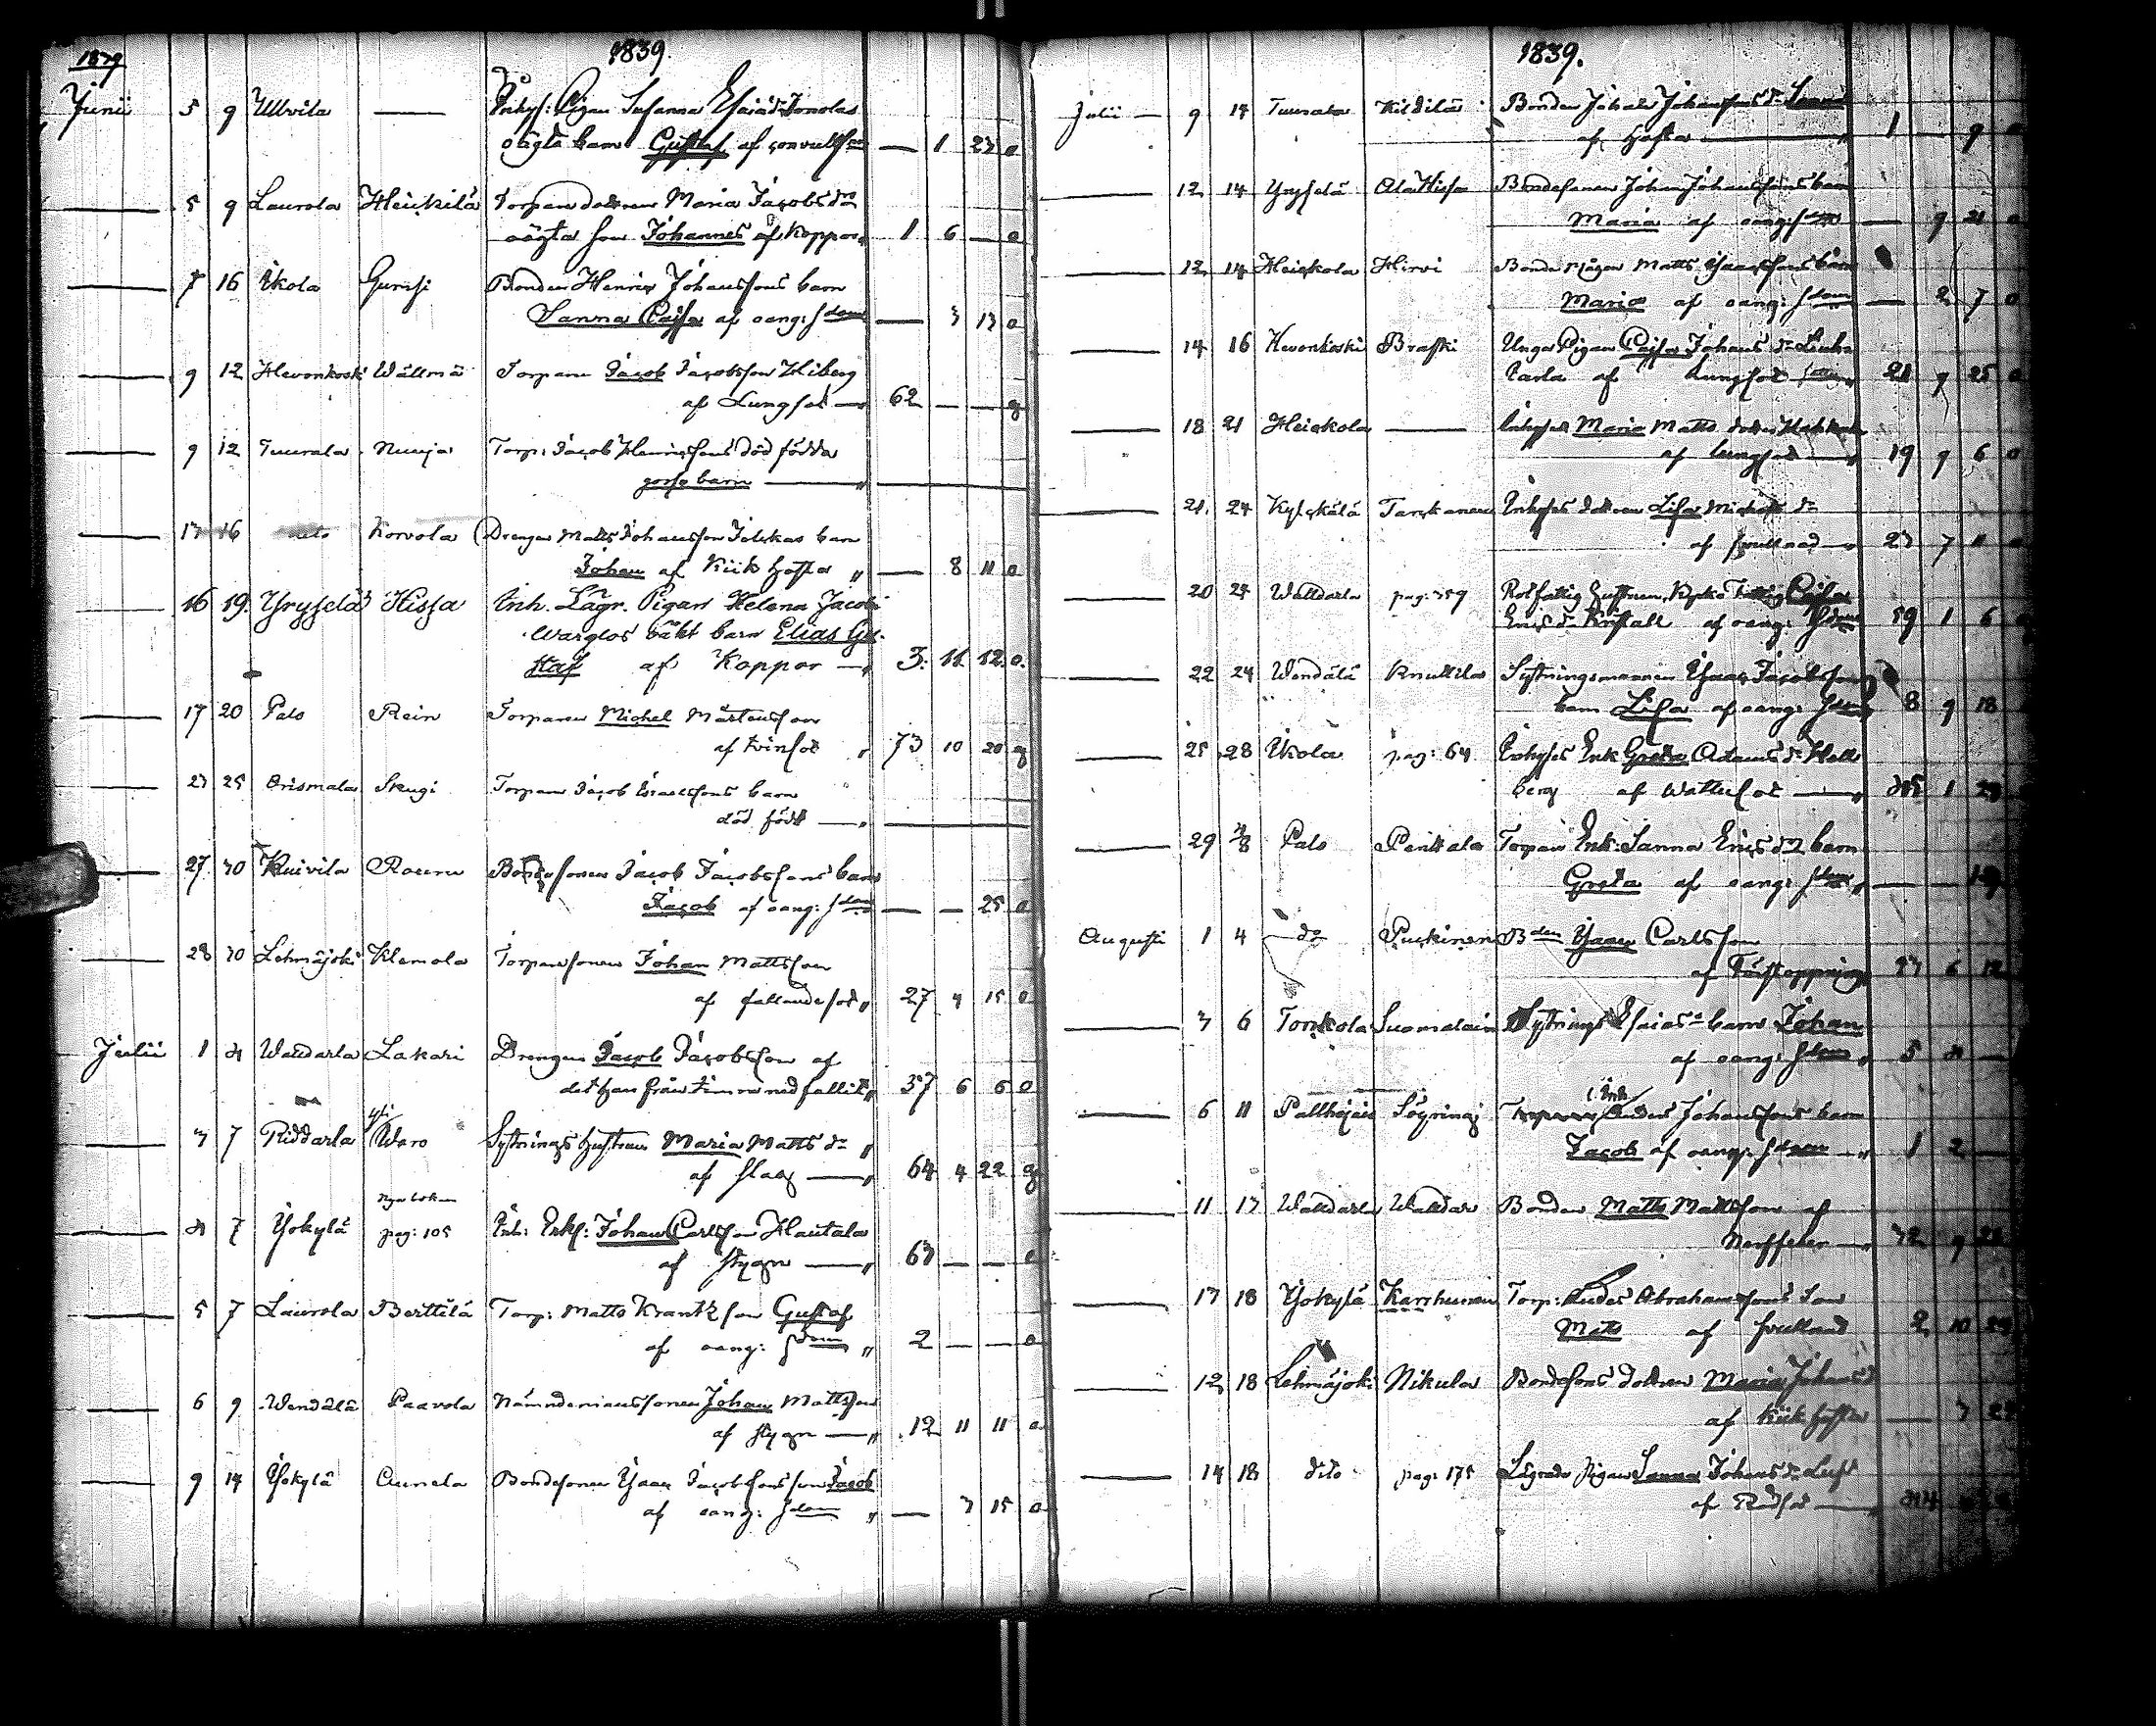 1839
1839.
Junii 5 9 Ullvila — Inhys: Pigan Susanna Esaiæ dr Tonolas
oägta barn Gustaf af convulsion — 1 23 0
— 5 9 Laurola Heikkilä Torpare dottren Maria Jacobs dr
oägta son Johannes af Koppor 1 6 — 0
— 7 16 Ikola Gunsi Bonden Henric Johanssons barn
Sanna Cajsa af oang: sjdom — 3 13 0
— 9 12 Hevonkoski Wällmä Torparen Jacob Jacobsson Hiberg
af Lungsot — 62 — — g
— 9 12 Tuurala Nuuja Torp: Jacob Henricssons död födda
gosse barn —
— 13 16 dito Korvola Drengen Matts Johansson barn
Johan af Kikhosta — 8 11 0
16 19. Yryselä Hissa Inh. Lägr. Pigan Helena Jacobs
Warglos oäkt barn Elias Gu-
staf af Koppor — 3. 11. 12. 0.
— 17 20 Palo Rein Torparen Michel Mårtensson
af tvinsot 73 10 20 g
— 23 25 Orismala Skugi Torparen Jacob barn
död född —
— 27 30 Kuivila Rauru Bondesonen Jacob Jacobssons barn
Jacob af oang: sjdom — — 25 0
— 28 30 Lehmäjoki Klemola Torparesonen Johan Mattsson
af fallandesot 27 4 15 0
Julii 1 4 Walldarla Lakari Drengen Jacob Jacobsson af
det han från timra nedfallit 37 6 6 0
— 3 7 Riddarla Yli Waro Sytnings hustrun Maria Matts dr
af slag — 64 4 22 g
nya boken
— 4 7 Yokylä pag: 105 Inh: Enkl: Johan Carlsson Hautala
af stygn — 63 — — 0
— 5 7 Laurola Berttilä Torp: Matts Krantz son Gustaf
af oang: sjdom 2 — — 0
— 6 9 Wendälä Paavola Nämndemanssonen Johan Mattsson
af stygn — 12 11 11 0
— 9 14 Yokylä Aunela Bondesonen Isaac Jacobssons son Jacob
af oang: sjdom — 3 15 0
1839.
Julii — 9 14 Tuurala Kildilä Bonden Johan Johanssons dr Sanna
af Hosta — 1 — 9 0
— 12 14 Yryselä Ala Hissa Bondesonen Johan Johanssons barn
Maria af oang: sjdom — 9 21 0
— 12 14 Heickola Hirvi Bonde Mågen Matts Isaacssons barn
Maria af oang: sjdom — 2 7 0
— 14 16 Hevonkoski Braski Unga Pigan Cajsa Johans dr
af Lungsot 21 9 25 0
— 18 21 Heickola — Inhyses Maria Matts dotter
af lungsot — 19 9 6 0
— 21. 24 Kylckälä Tarckanen Inhyses dottren Lisa Michels dr
af 23 7 11 0
— 20 24 Walldarla pag: 359 Rotfattig hustrun Cajsa
Erics dr Kristall af oang: sjdom 59 1 6
— 22 24 Wendälä Knuttila Sytningsmannen Isaac Jacobssons
barn Lisa af oang: sjdom 8 9 18
— 25 28 Ikola pag: 64 Inhyses Enk Greta Adams dr Hell
berg af Wattusot — 1 23
— 29 4/8 Palo Penkala Torpare Enk: Sanna Erics dr barn
Greta af oang: sjdom — — 19
Augusti 1 4 — do Puckinen Bden Isaac Carlsson
af Förstoppning 6 12
— 3 6 Torckola Suomalain Sytnings Esaias barn Johan
af oang: sjdom 5 4 —
— 6 11 Palhojais Söyring Inh Anders Johanssons barn
Jacob af oang: sjdom — 1 2 —
— 11 13 Walldarla Walldar Bonden Matts Mattsson af
Nerffeber — 72 9 21
— 17 18 Yokylä Karrhunen Torp: Anders Abrahamssons Son
Matts af 2 10 24
— 12 18 Lehmäjoki Nikula Bondesons dottren Maria Johans d
af Kikhosta — 3 23
— 14 18 dito pag: 175 Lägrade Pigan Sanna Johans dr
af Rödsot —